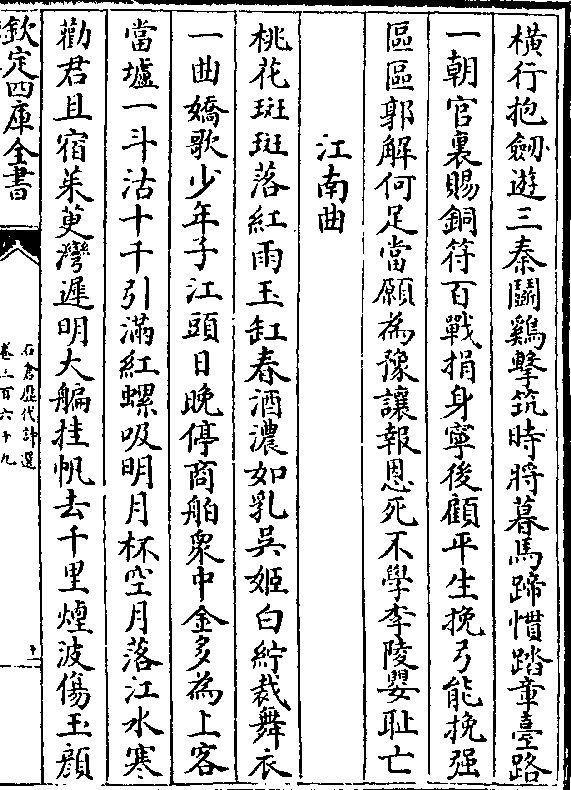 橫行抱劒遊三秦鬭鷄擊筑時將暮馬蹄慣踏章臺路
一朝官裏賜銅符百戰捐身寧後顧平生挽弓能挽强
區區郭解何足當願為豫讓報恩死不學李陵嬰耻亡
江南曲
桃花斑斑落紅雨玉缸春酒濃如乳吳姬白紵裁舞衣
一曲嬌歌少年子江頭日晚停商舶衆中金多為上客
當壚一斗沽十千引滿紅螺吸明月杯空月落江水寒
勸君且宿茱萸灣遲明大艑挂帆去千里煙波傷玉顔
欽定四庫全書
石倉歷代詩選
卷三百六十九
十一